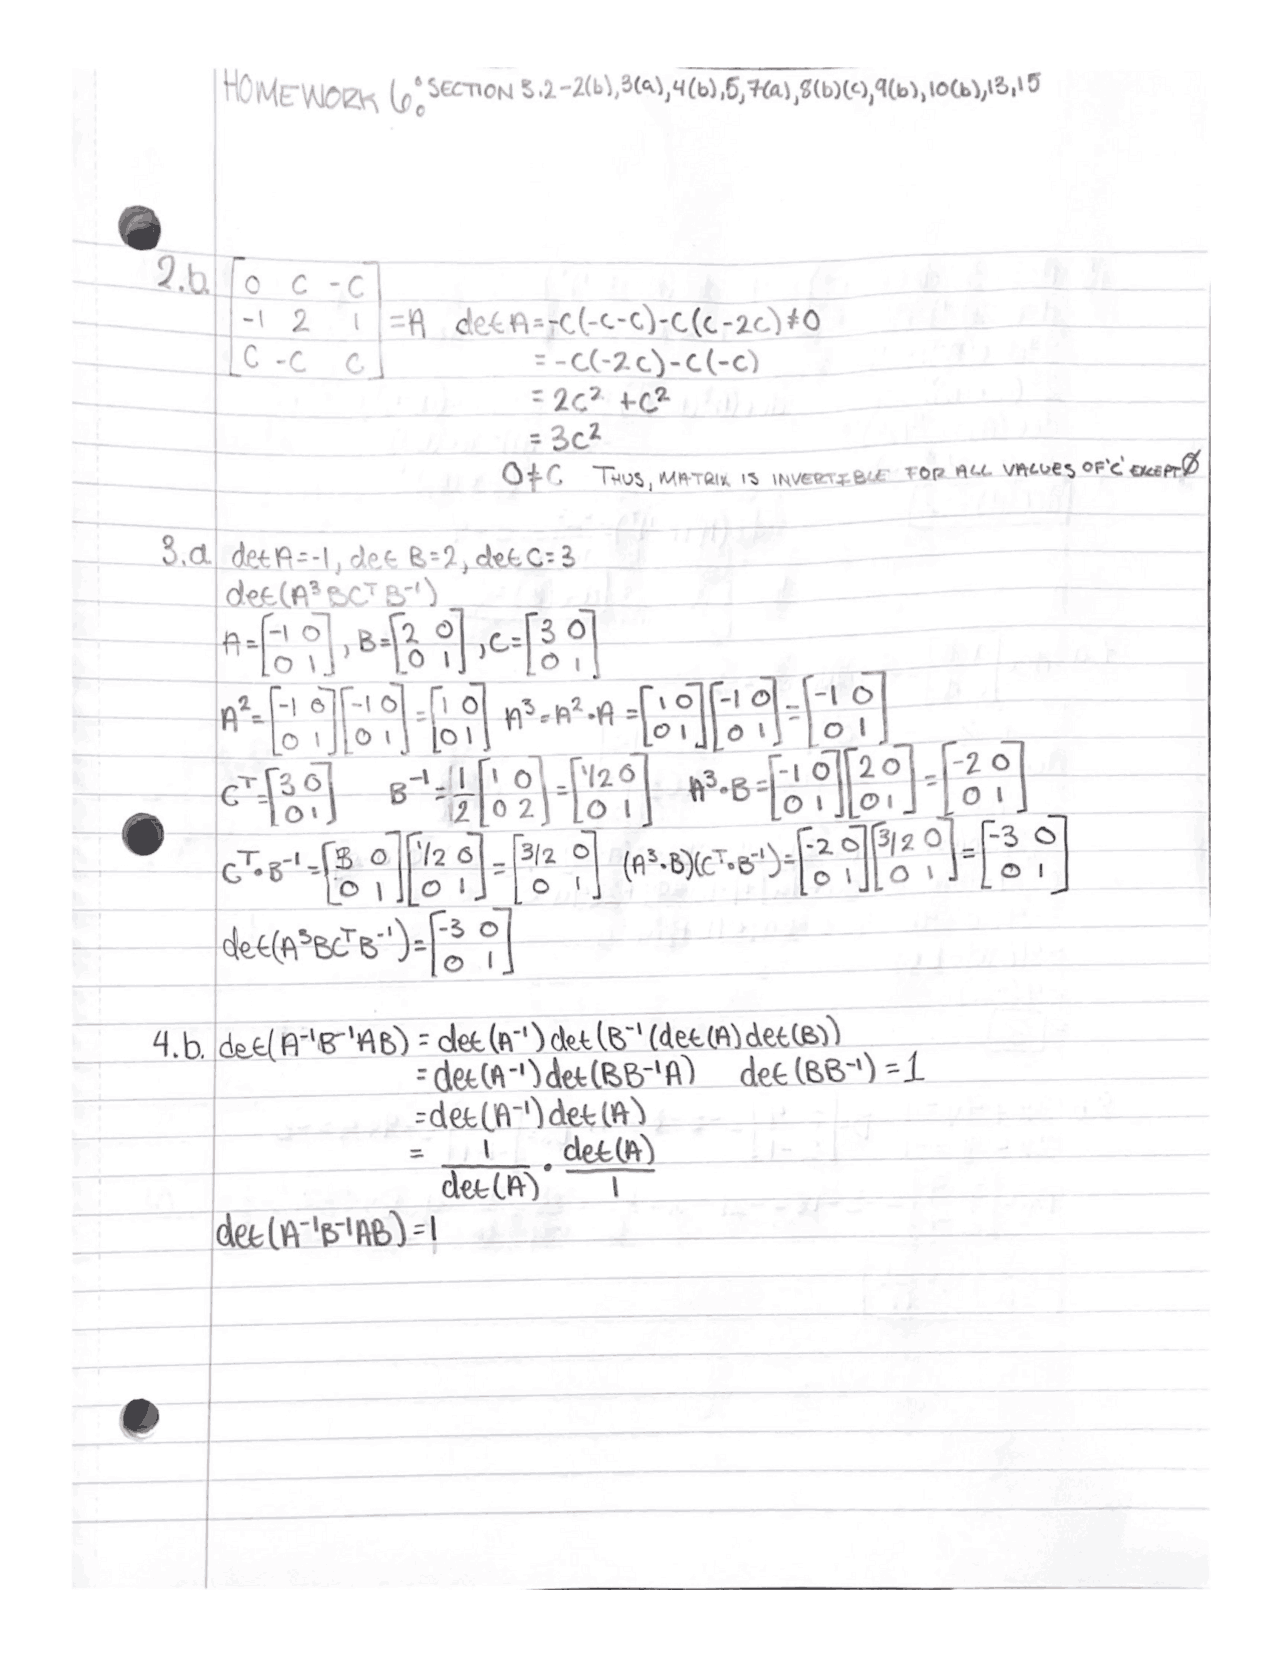 HOMEWORK 6: SECTION 3.2-2(b), 3(a), 4(b), 5, 7(a), 8(b)(c), 9(b), 10(b), 13, 15
2.b. [0 C -C; -1 2 1; C -C C] = A det A = -C(-C-C)-C(C-2C) ≠ 0
= -C(-2C)-C(-C)
= 2C² + C²
= 3C²
0 ≠ C THUS, MATRIX IS INVERTIBLE FOR ALL VALUES OF 'C' EXCEPT Ø
3.a det A = -1, det B = 2, det C = 3
det(A³BCᵀB⁻¹)
A = [-1 0; 0 1], B = [2 0; 0 1], C = [3 0; 0 1]
A² = [-1 0; 0 1][-1 0; 0 1] = [1 0; 0 1] A³ = A²·A = [1 0; 0 1][-1 0; 0 1] = [-1 0; 0 1]
Cᵀ = [3 0; 0 1] B⁻¹ = 1/2 [1 0; 0 2] = [1/2 0; 0 1] A³·B = [-1 0; 0 1][2 0; 0 1] = [-2 0; 0 1]
Cᵀ·B⁻¹ = [3 0; 0 1][1/2 0; 0 1] = [3/2 0; 0 1] (A³·B)(Cᵀ·B⁻¹) = [-2 0; 0 1][3/2 0; 0 1] = [-3 0; 0 1]
det(A³BCᵀB⁻¹) = [-3 0; 0 1]
4.b. det(A⁻¹B⁻¹AB) = det(A⁻¹)det(B⁻¹(det(A)det(B))
= det(A⁻¹)det(BB⁻¹A) det(BB⁻¹) = 1
= det(A⁻¹)det(A)
= 1/det(A) · det(A)/1
det(A⁻¹B⁻¹AB) = 1